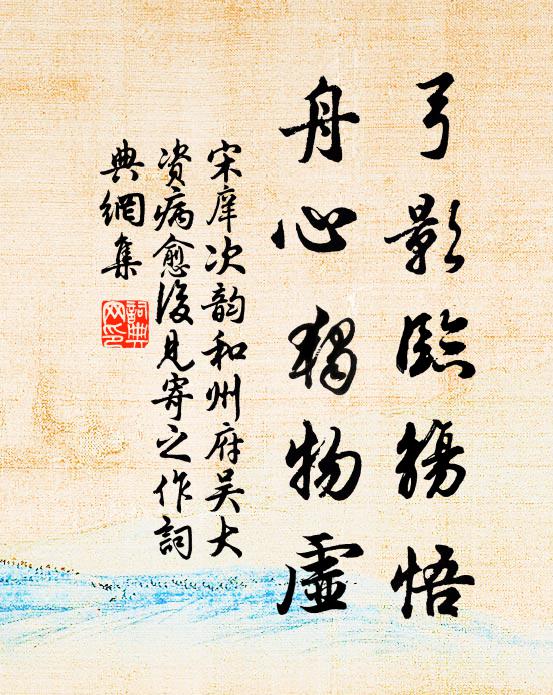 弓影臨觴悟
舟心獨物虛
宋庠次韵和州府吴大
资病愈後見寄之作詞
典網集
詞典
网印